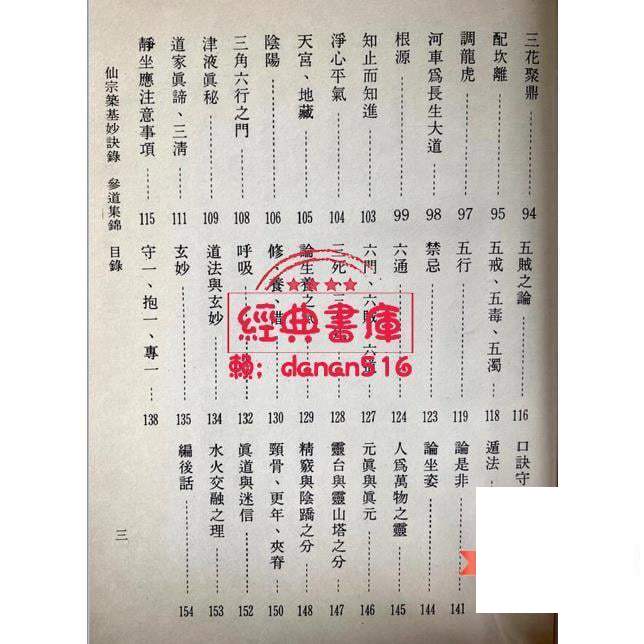 三花聚鼎……94
配坎離……95
調龍虎……97
河車爲長生大道……98
根源……99
知止而知進……103
淨心平氣……104
天宮、地藏……105
陰陽……106
三角六行之門……108
津液眞秘……109
道家眞諦、三淸……111
靜坐應注意事項……115
五賊之論……116
五戒、五毒、五濁……118
五行……119
禁忌……123
六通……124
六門、六賊、六道……127
三死、三……128
論生養之……129
修、養、借……130
呼吸……132
道法與玄妙……134
玄妙……135
守一、抱一、專一……138
口訣守
遁法
論是非……141
論坐姿……144
人爲萬物之靈……145
元眞與眞元……146
靈台與靈山塔之分……147
精竅與陰蹻之分……148
頸骨、更年、夾脊……150
眞道與迷信……152
水火交融之理……153
編後話……154
仙宗築基妙訣錄 參道集錦 目錄
三
經典書庫
賴; danan516